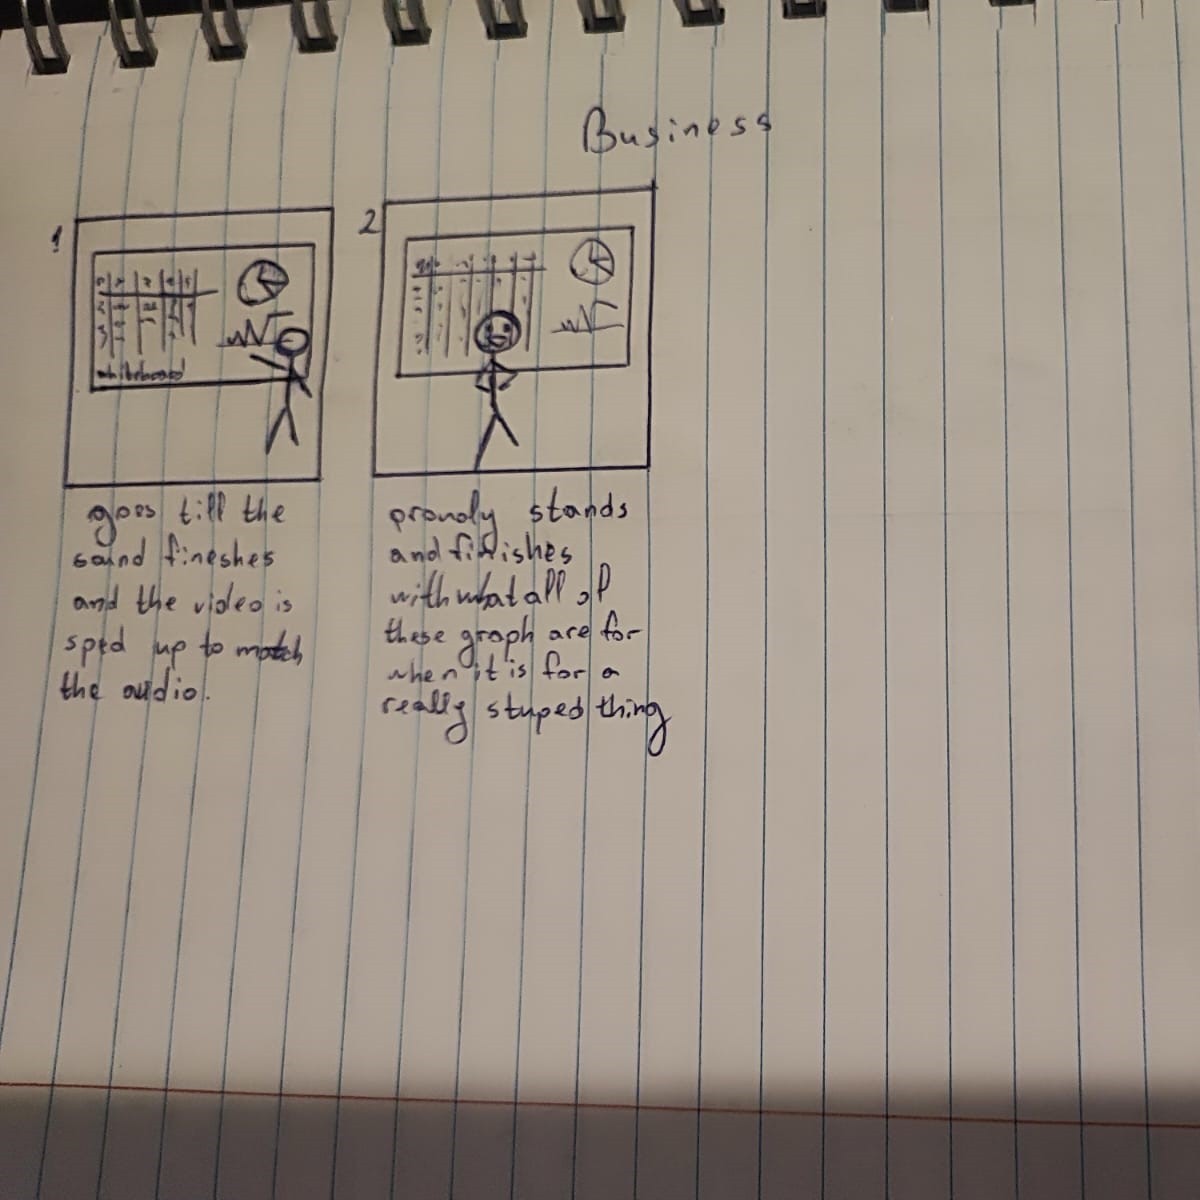 Business
1
whiteboard
goes till the
saind fineshes
and the video is
sped up to match
the audio.
2
proudly stands
and finishes
with what all of
these graph are for
when it is for a
really stuped thing